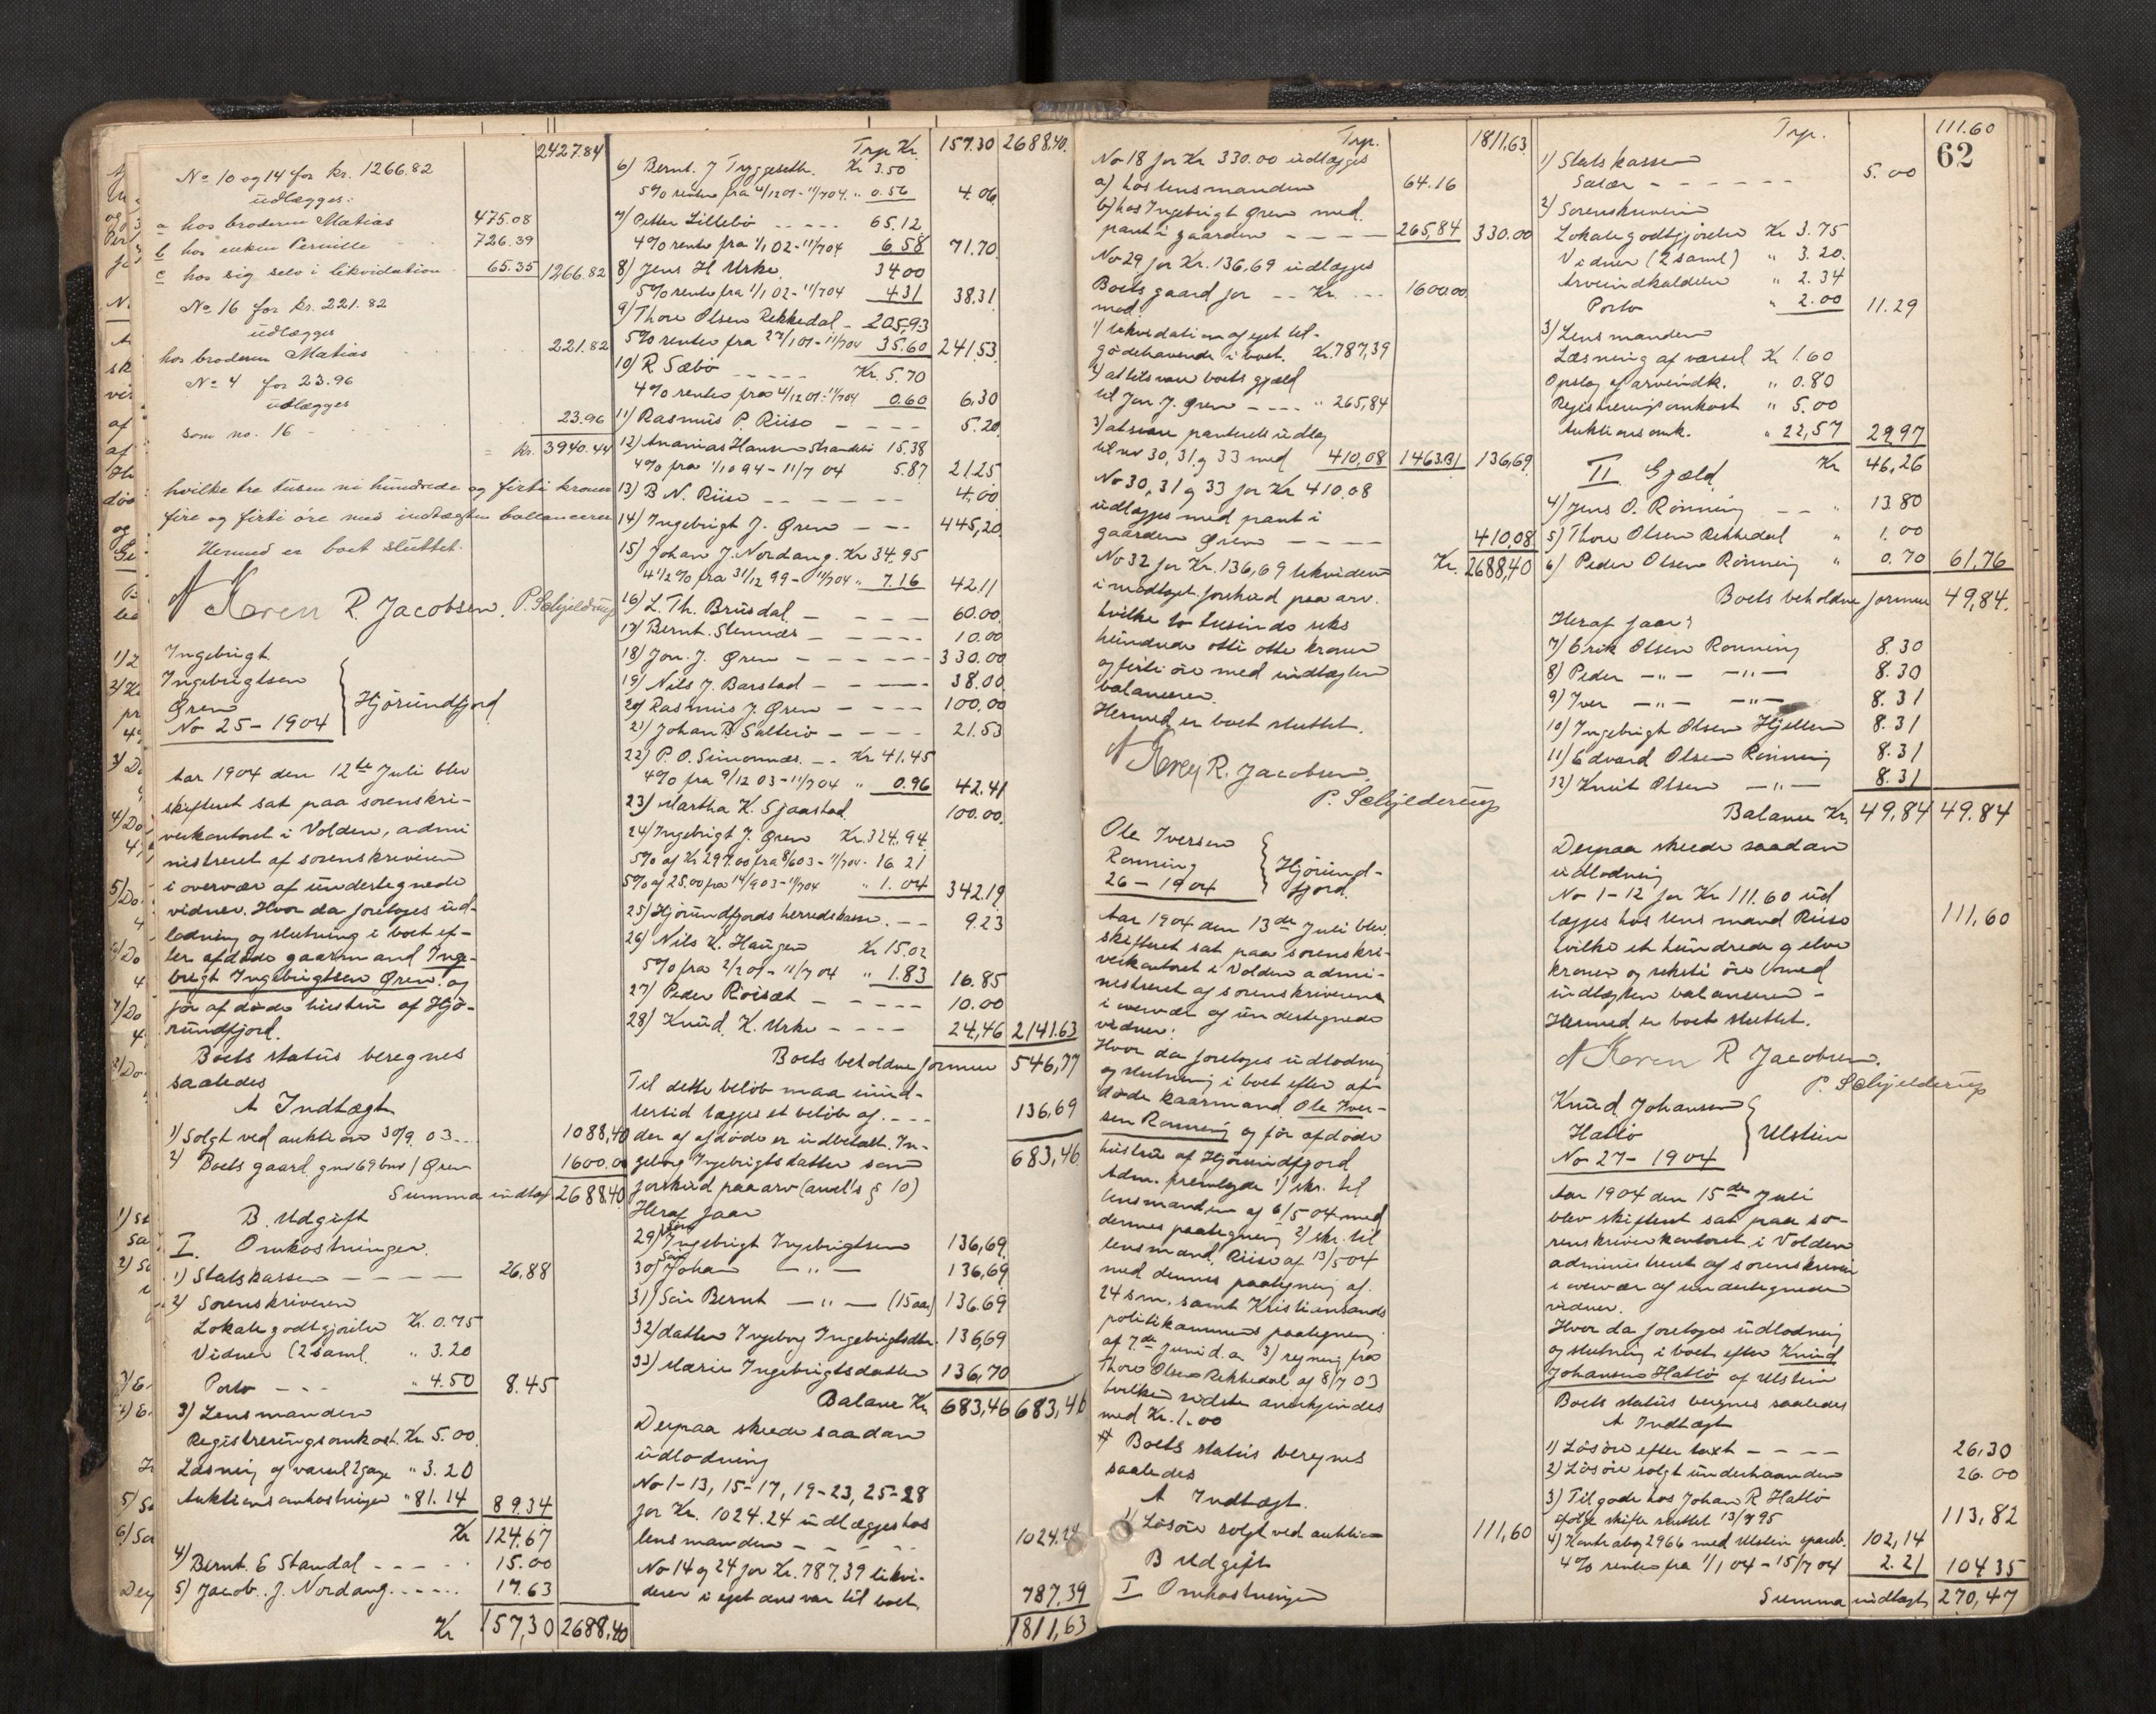 2427.84
No 10 og 14 for kr. 1266.82
udlægges:
a hos broderen Matias 475.08
b hos enken Pernille 726.39
c hos sig selv i likvidation 65.35 1266.82
No 16 for kr. 221.82
udlægges
hos broderen Matias 221.82
No 4 for 23.96
udlægges
som no. 16 - 23.96
= kr. 3940.44
hvilke tre tusen ni hundrede og firti kroner
fire og firti øre med indtægten ballancerer
Hermed er boet sluttet.
N Koren R. Jacobsen. P. Schjelderup
Ingebrigt
Ingebrigtsen
Øren
No 25 - 1904
Hjørundfjord
Aar 1904 den 12te Juli blev
skifteret sat paa sorenskri-
verkontoret i Volden, admi
nistreret af sorenskriveren
i overvær af undertegnede
vidner. Hvor da foretoges ud-
lodning og slutning i boet ef-
ter afdøde gaarmand Inge-
brigt Ingebrigtsen Øren og
før afdøde hustru af Hjø-
rundfjord.
Boets status beregnes
saaledes
A Indtægt
1) Solgt ved auktion 30/9 03 1088,40
2) Boets gaard gno 69 bno 1 Øren 1600.00
Summa indtægt 2688.40
B. Udgift
I. Omkostninger.
1) Statskassen - - - - 26,88
2) Sorenskriveren
Lokalegodtgjørelse Kr. 0.75
Vidner (2 saml. " 3.20
Porto - - - " 4.50 8.45
3) Lensmanden
Registreringsomkost. Kr. 5.00
Læsning af varsel 2 gange " 3.20
Auktionsomkostninger " 81.14 89.34
Kr 124.67
4) Bernt E Standal - - - - 15.00
5) Jacob. J. Nordang. - - - - 17.63
Kr 157,30 2688,40
Trp Kr. 157.30 2688.40.
6) Bernt. J Tryggeseth. Kr 3.50
5% renter fra 4/12 01 - 11/7 04. " 0.56 4.06
7) Petter Lillebø - - - - - 65.12
4% rente fra 1/1 02 - 11/7 04 6.58 71.70
8) Jens H Urke. 34 00
5% rente fra 1/1 02 - 11/7 04 4 31 38.31
9) Thore Olsen Rekkedal - 205.93
5% renter fra 27/1 01 - 11/7 04 35.60 241.53
10) R. Sæbø - - - - - Kr. 5.70
4% renter fra 4/12 01 - 11/7 04 0.60 6.30
11) Rasmus P. Riise - - - - 5.20
12) Ananias Hansen Strandebø 15.38
4% fra 1/10 94 - 11/7 04 5.87 21.25
13) B N. Riise - - - - - - 4,00
14) Ingebrigt J. Øren - - - 445,20
15) Johan J. Nordang. Kr 34.95
4 1/2% fra 31/12 99 - 11/7 04 " 7.16 42.11
16) L. Th. Brusdal. - - - - 60.00
17) Bernt. Stennæs - - - - - 10.00
18) Jon. J. Øren - - - - - - 330.00
19) Nils J. Barstad - - - - 38.00
20) Rasmus J. Øren - - - - 100.00
21) Johan B Saltrø - - - - 21.53
22) P. O. Simonnæs. - - Kr 41.45
4% fra 9/12 03 - 11/7 04 " 0.96 42.41
23) Martha K. Sjaastad 100.00
24) Ingebrigt J. Øren Kr. 324.94
5% af Kr 297.00 fra 8/6 03 - 11/7 04 - 16 21
5% af 25.00 fra 14/9 03 - 11/7 04 " 1.04 342.19
25) Hjørundfjords herredskasse. - - 9.23
26) Nils K. Haugen Kr 15.02
5% fra 2/2 01 - 11/7 04 " 1.83 16.85
27) Peder Riiset - - - - - 10.00
28) Knud K. Urke - - - - 24,46 2141.63
Boets beholdne formue 546,77
Til dette beløb maa imid-
lertid lægges et beløb af. - - - 136,69
der af afdøde er udbetalt In-
geborg Ingebrigtsdatter som 683,46
forskud paa arv (arvel's § 10)
Heraf faar
29) Søn Ingebrigt Ingebrigtsen 136,69
30) Søn Johan - " - 136,69
31) Søn Bernt - " - (15 aar) 136.69
32) datter Ingeborg Ingebrigtsdtr. 136,69
33) Marie Ingebrigtsdatter 136,70
Balance Kr. 683,46 683,46
Derpaa skeede saadan
udlodning
No 1-13, 15-17, 19-23, 25-28
for Kr. 1024.24 udlægges hos
lensmanden - - - - - 1024.24
No 14 og 24 for Kr. 787.39 likvi-
derer i eget ansvar til boet. 787,39
1811,63
Trp. 1811,63
No 18 for Kr 330.00 udlægges
a) hos lensmanden 64.16
b) hos Ingebrigt Øren med.
pant i gaarden - - - - 265,84 330.00
No 29 for Kr. 136.69 udlægges
Boets gaard for - - Kr. - - - 1600.00
med.
1) likvidation af eget til-
godehavende i boet. Kr. 787,39
2) at tilsvare boets gjæld
til Jon. J. Øren - - - - " 265,84
3) at svare pantets udlæg
til no 30, 31 og 33 med 410,08 1463.31 136,69
No 30, 31 og 33 for Kr 410.08
udlægges med pant i
gaarden Øren - - - - 410,08
No 32 for Kr. 136,69 likvideres Kr. 2688,40
i modtaget forskud paa arv.
hvilke to tusinde seks
hundrede otti otte kroner
og firti øre med indtægten
balancerer.
Hermed er boet sluttet.
N Koren R. Jacobsen.
P. Schjelderup
Ole Iversen
Rønning
26 - 1904
Hjørund-
fjord.
Aar 1904 den 13de Juli blev
skifteret sat paa sorenskri-
verkontoret i Volden admi-
nistreret af sorenskriveren
i overvær af undertegnede
vidner.
Hvor da foretoges udlodning
og slutning i boet efter af-
døde kaarmand Ole Iver-
sen Rønning og før afdøde
hustru af Hjørundfjord
Adm. fremlagde 1) skr. til
lensmanden af 6/5 04 med
dennes paategning 2) skr. til
lensmand, Riise af 13/5 04
med dennes paategning af.
24 s.m. samt Kristiansands
politikammers paategning
af 7de juni d.a. 3) regning fra
Thore Olsen Rekkedal af 8/7 03
hvilken sidste anerkjendes
med Kr. 1.00
Boets status beregnes
saaledes
A Indtægt.
1) Løsøre solgt ved auktion 111,60
B Udgift
I Omkostninger
Trp. 111.60
62
1) Statskassen
Salær - - - - - - 5.00
2) Sorenskriveren
Lokalegodtgjørelse Kr 3.75
Vidner (2 saml) " 3.20.
Arveindkaldelse " 2.34
Porto " 2.00 11.29
3) Lensmanden
Læsning af varsel Kr 1.60
Opslag af arveindk. " 0.80
Registreringsomkost " 5.00
Auktionsomk. " 22,57 29,97
II Gjæld. Kr 46,26
4) Jens O. Rønning - - " 13.80
5) Thore Olsen Rekkedal " 1.00
6) Peder Olsen Rønning " 0.70 61,76
Boets beholdne formue 49,84.
Heraf faar:
7) Erik Olsen Rønning 8.30
8) Peder - " - - " - 8.30
9) Iver - " - - " - 8.31
10) Ingebrigt Olsen Hjellen 8.31
11) Edvard Olsen Rønning 8.31
12) Knut Olsen - " - 8.31
Balance Kr. 49,84 49.84
Derpaa skeede saadan
udlodning
No 1-12 for Kr 111.60 ud
lægges hos lensmand Riise 111,60
hvilke et hundrede og elve
kroner og seksti øre med
indtægten balanserer -
Hermed er boet sluttet.
N Koren R Jacobsen.
P. Schjelderup
Knud Johansen
Hatlø
No 27 - 1904
Ulstein
Aar 1904 den 15de Juli
blev skifteret sat paa so-
renskriverkontoret i Volden
administreret af sorenskriveren
i overvær af undertegnede
vidner.
Hvor da foretoges udlodning
og slutning i boet efter Knud
Johansen Hatlø af Ulstein
Boets status beregnes saaledes
A Indtægt
1) Løsøre efter taxt - - - - 26,30
2) Løsøre solgt underhaanden 26.00
3) Tilgode hos Johan R Hatlø
ifølge skifte sluttet 13/7 95 113,82
4) Kontrabog 2966 med Ulstein spareb. 102,14
4% renter fra 1/1 04 - 15/7 04 2.21 104.35
Summa indtægt 270,47